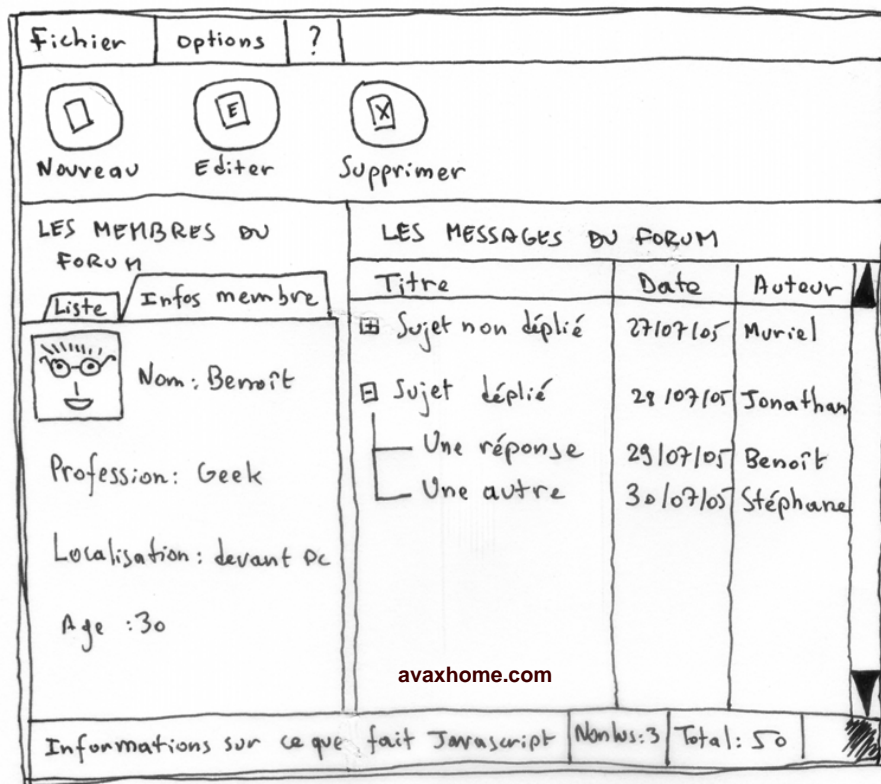 Fichier Options ?
E X
Nouveau Editer Supprimer
LES MEMBRES DU
FORUM
Liste Infos membre
Nom : Benoît
Profession : Geek
Localisation : devant PC
Age : 30
LES MESSAGES DU FORUM
Titre Date Auteur
Sujet non déplié 27/07/05 Muriel
Sujet déplié 28/07/05 Jonathan
Une réponse 29/07/05 Benoît
Une autre 30/07/05 Stéphane
avaxhome.com
Informations sur ce que fait Javascript Non lus : 3 Total : 50